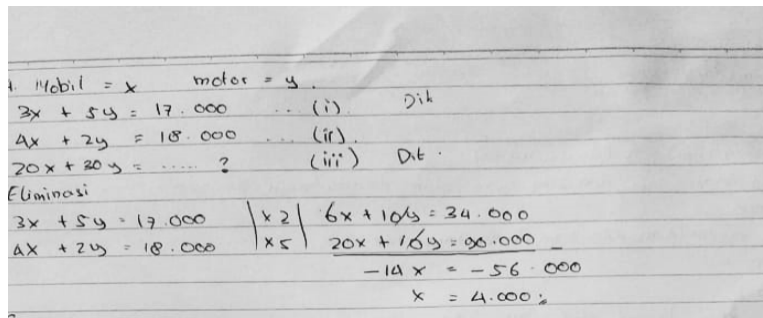 1. Mobil = x motor = y.
3x + 5y = 17.000 ... (i) Dik
4x + 2y = 18.000 ... (ii).
20x + 30y = ..... ? (iii) Dit.
Eliminasi
3x + 5y = 17.000 | x 2 | 6x + 10y = 34.000
4x + 2y = 18.000 | x 5 | 20x + 10y = 90.000 -
-14x = -56.000
x = 4.000;